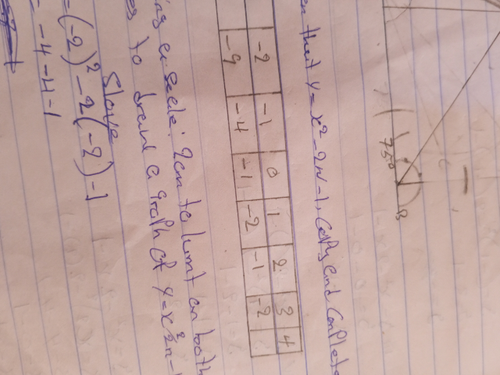 75° B
that y = x² - 2x - 1, Copy and Complete
-2 -1 0 1 2 3 4
-9 -4 -1 -2 -1 -2
a scale: 2cm to 1unit on both
to draw a graph of y = x² 2x -
Slove
= (-2)² - 2(-2) - 1
= -4 - 4 - 1